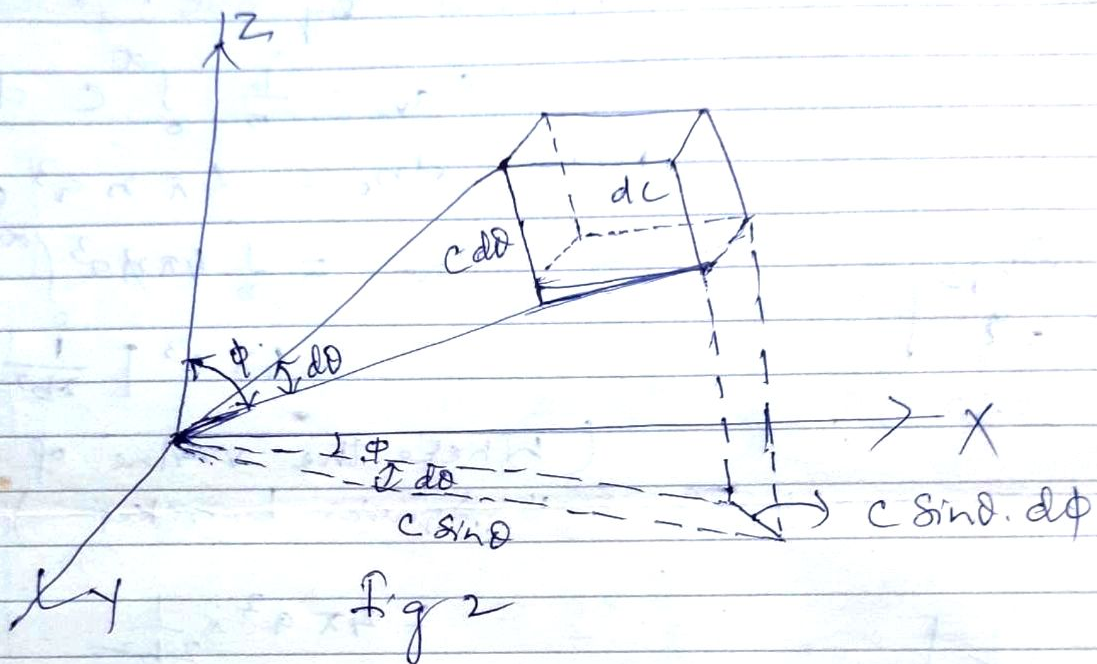 Z
dc
c dθ
ϕ dθ
X
ϕ
dθ
c sinθ . dϕ
c sinθ
Y
fig 2